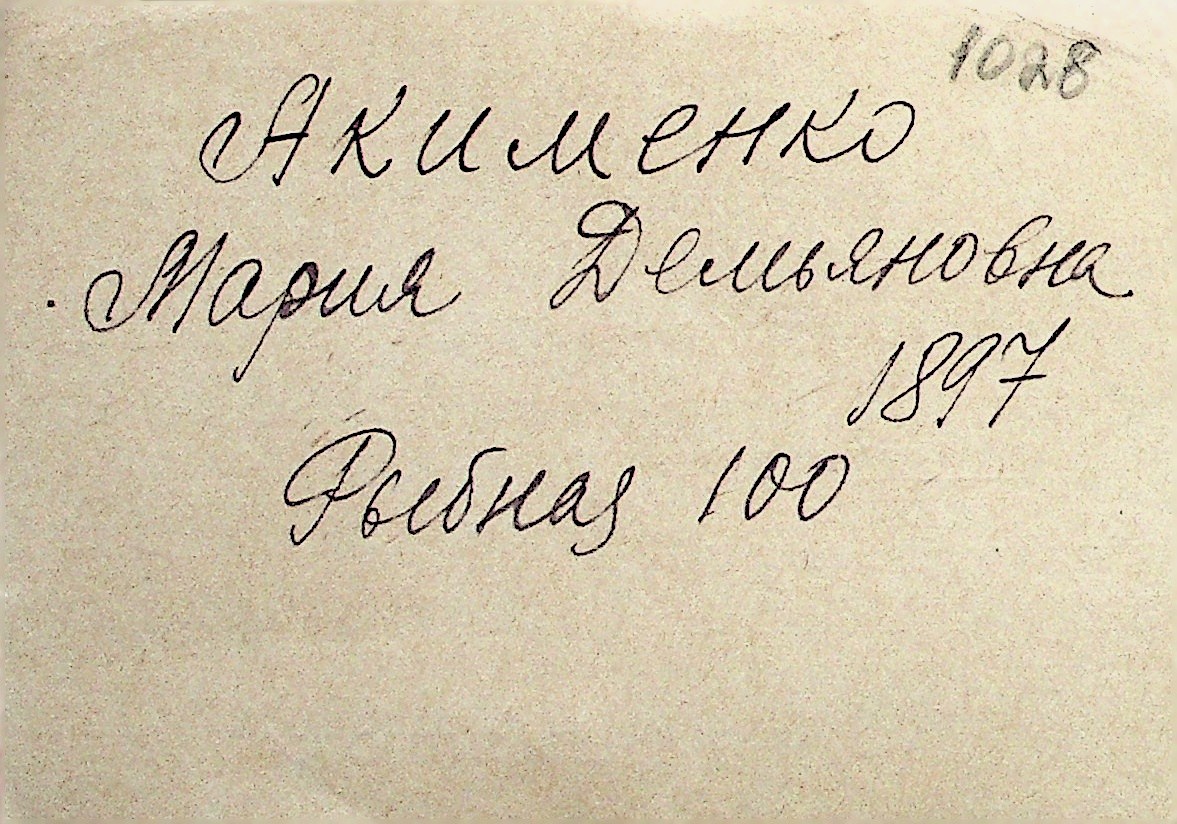 1028
Акименко
Мария Демьяновна
1897
Рыбная 100